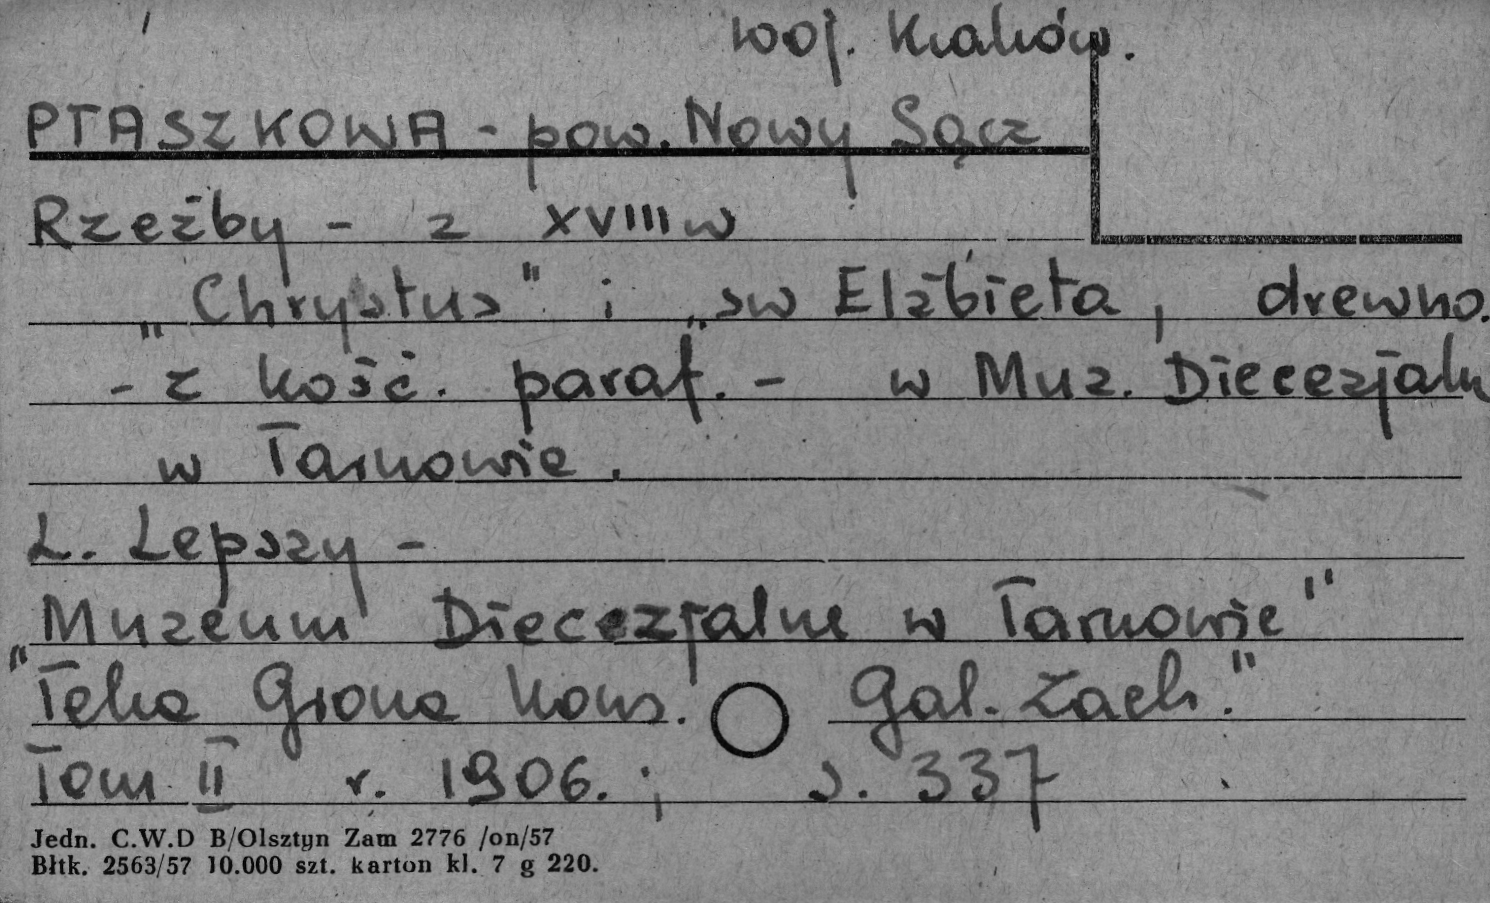 woj. Kraków.
PTASZKOWA - pow. Nowy Sącz
Rzeźby - z XVIII w
„Chrystus" i „sw Elżbieta, drewno.
- z kość. paraf. - w Muz. Diecezjaln
w Tarnowie.
L. Lepszy -
"Muzeum Diecezjalne w Tarnowie"
"Teka Grona Kons. Gal. Zach."
Tom II r. 1906. ; s. 337
Jedn. C.W.D B/Olsztyn Zam 2776 /on/57
Błtk. 2563/57 10.000 szt. karton kl. 7 g 220.